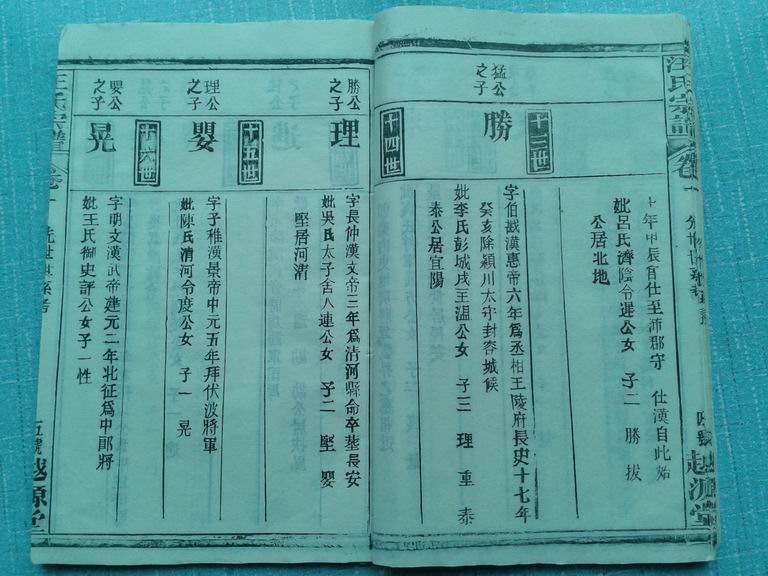 汪氏宗譜
卷一
越源堂
十年甲辰官仕至沛郡守 仕漢自此始
妣呂氏濟陰令遲公女 子二 勝 拔
公居北地
十三世
猛公
之子
勝
字伯戡漢惠帝六年爲丞相王陵府長史十七年
癸亥除潁川太守封容城候
妣李氏彭城戌王溫公女 子三 理 重 泰
泰公居宜陽
十四世
勝公
之子
理
字長仲漢文帝三年爲清河縣命卒塟長安
妣吳氏太子舍人連公女 子二 堅 嬰
堅居河清
十五世
理公
之子
嬰
字子稚漢景帝中元五年拜伏波將軍
妣陳氏清河令度公女 子一 晃
十六世
嬰公
之子
晃
字明文漢武帝建元二年北征爲中郎將
妣王氏御史評公女子一性
汪氏宗譜
卷一
五號
越源堂